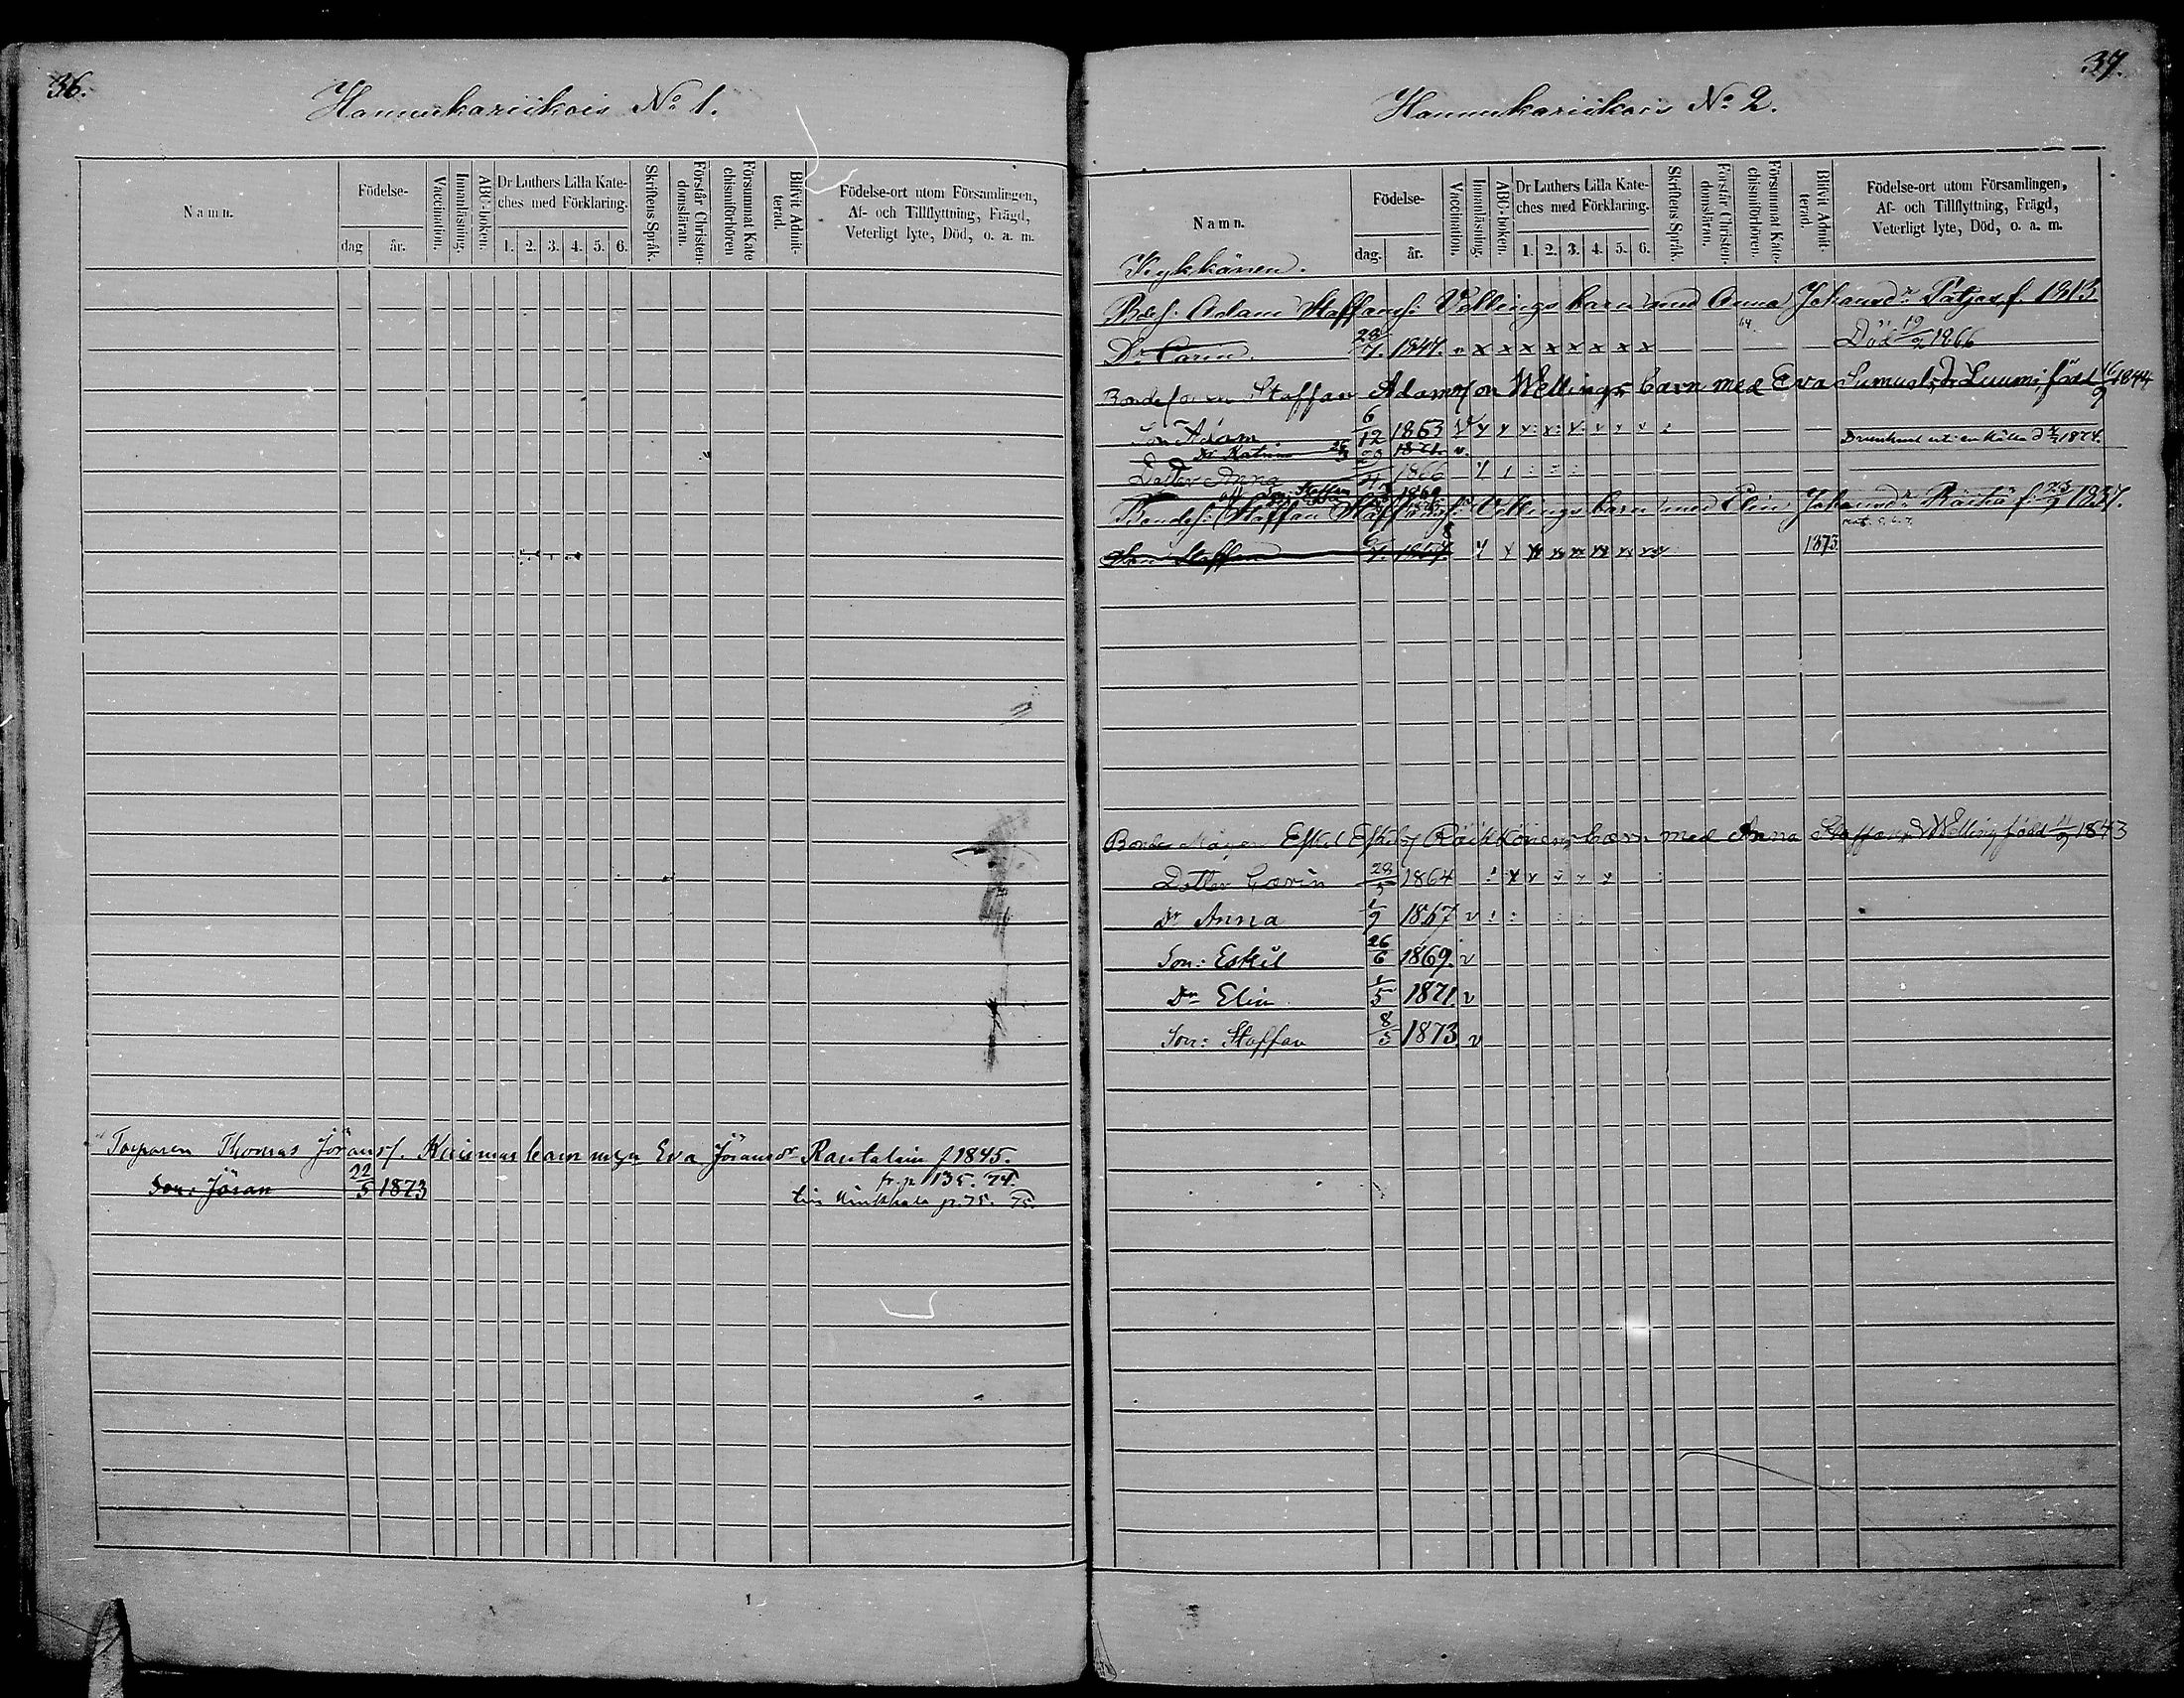 36.
Hannukariikois No 1.
Namn.
Födelse-
dag
år.
Vaccination.
Innanläsning.
ABC-boken.
Dr Luthers Lilla Kate-
ches med Förklaring.
1. 2. 3. 4. 5. 6.
Skriftens Språk.
Förstår Christen-
domsläran.
Försummat Kate
chismiförhören
Blifvit Admit-
terad.
Födelse-ort utom Församlingen,
Af- och Tillflyttning, Frägd,
Veterligt lyte, Död, o. a. m.
Torparen Thomas Jöranss. barn men Eva Jöransdr Rantalain f 1845.
fr. p 135. 74.
Son: Jöran 22/5 1873
p. 75. 75.
37.
Hannukariikois No 2.
Namn.
Födelse-
dag.
år.
Vaccination.
Innanläsning.
ABC-boken.
Dr Luthers Lilla Kate-
ches med Förklaring.
1. 2. 3. 4. 5. 6.
Skriftens Språk.
Förstår Christen-
domsläran.
Försummat Kate-
chismiförhören.
Blifvit Admit-
terad.
Födelse-ort utom Församlingen,
Af- och Tillflyttning, Frägd,
Veterligt lyte, Död, o. a. m.
Kykkänen.
Bdes: Adam Staffans: Vellings barn med Anna Johansdr Patjas f. 1815
Dr Carin. 28/7. 1847. v x x x x x x x x Död 19/2 1866
Bondesonen Staffan Adamsson Wellings barn med Eva Samuelsdr Luumi född 16/9 1844
Son Adam 6/12 1863
Dr Katrina 26/3 1871. v. 1874.
Dotter Anna 20/4 1866
Son Staffan 1869
Bondes: Staffan Staffanss: Vellings barn med Elin Johansdr Räihä f. 23/9 1837.
Son Staffan 6/7. 1857. 1873.
Bonde Mågen Eskel Eskels Räikkönens barn med Anna Staffansdr Welling född 11/9 1843
Dotter Carin 28/5 1864
Dr Anna 1/9 1867 v
Son: Eskil 26/6 1869. v
Dr Elin 1/5 1871. v
Son: Staffan 8/5 1873. v